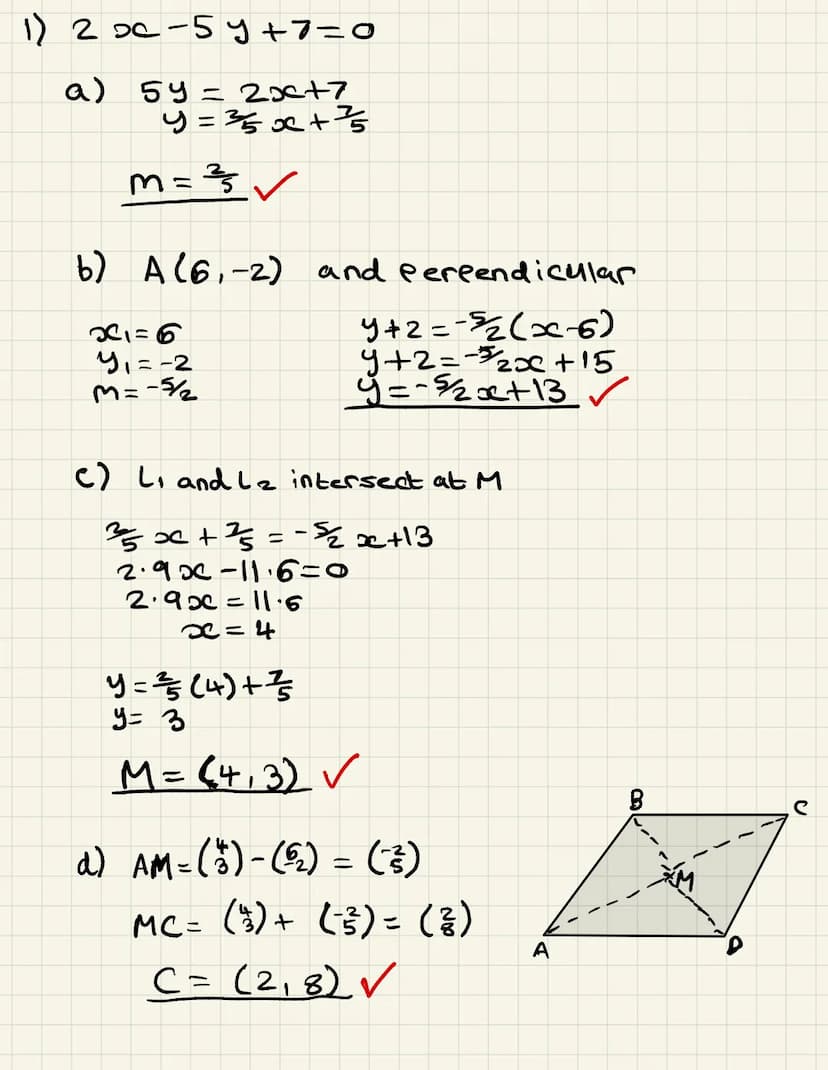 1) 2x-5y+7=0
a) 5y = 2x+7
y = 2/5 x + 7/5
m = 2/5 ✓
b) A(6,-2) and perpendicular
x₁=6
y₁=-2
m=-5/2
y+2=-5/2(x-6)
y+2=-5/2x+15
y=-5/2x+13 ✓
c) L₁ and L₂ intersect at M
2/5 x + 7/5 = -5/2 x+13
2.9x-11.6=0
2.9x=11.6
x=4
y=2/5(4)+7/5
y= 3
M=(4,3) ✓
d) AM=(4 3)-(6 -2) = (-2 5)
MC= (4 3)+(-2 5)=(2 8)
C=(2,8) ✓
B
C
M
A
D